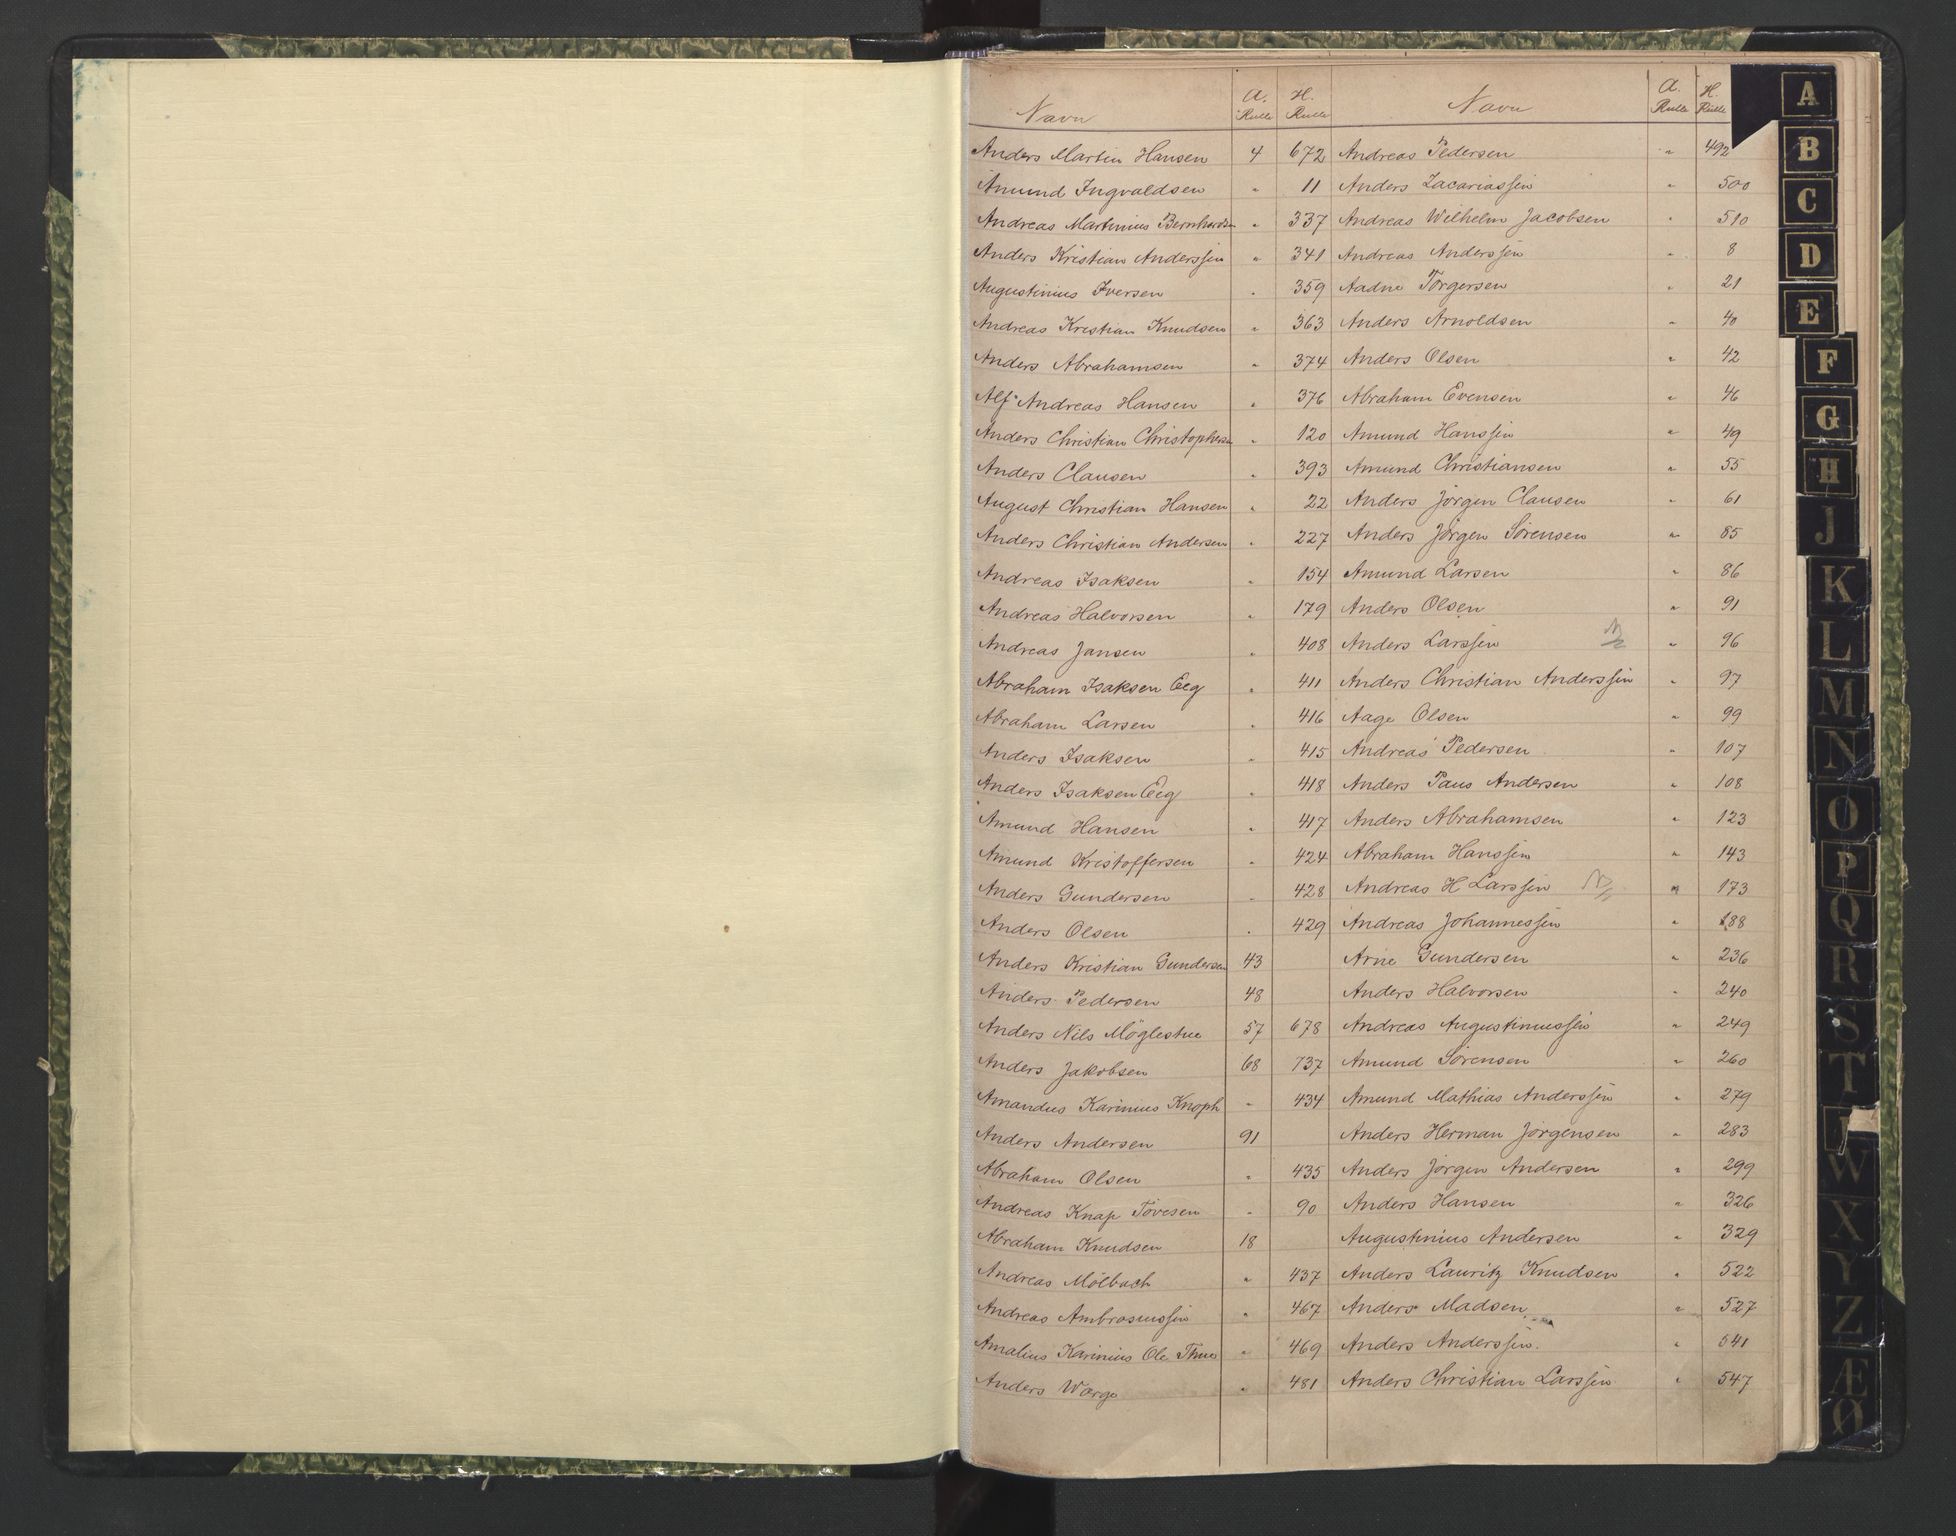 Navn A. Rulle H. Rulle Navn A. Rulle H. Rulle
Anders Martin Hansen 4 672 Andreas Pedersen " 492
Amund Ingvaldsen " 11 Anders Zacariassen " 500
Andreas Martinius Bernhardsen " 337 Andreas Wilhelm Jacobsen " 510
Anders Kristian Anderssen " 341 Andreas Anderssen " 8
Augustinius Iversen " 359 Aadne Torgersen " 21
Andreas Kristian Knudsen " 363 Anders Arnoldsen " 40
Anders Abrahamsen " 374 Anders Olsen " 42
Alf Andreas Hansen " 376 Abraham Evensen " 46
Anders Christian Christophersen " 120 Amund Hanssen " 49
Anders Clausen " 393 Amund Christiansen " 55
August Christian Hansen " 22 Anders Jörgen Clausen " 61
Anders Christian Andersen " 227 Anders Jörgen Sörensen " 85
Andreas Isaksen " 154 Amund Larsen " 86
Andreas Halvorsen " 179 Anders Olsen " 91
Andreas Jansen " 408 Anders Larssen " 96
Abraham Isaksen Eeg " 411 Anders Christian Anderssen " 97
Abraham Larsen " 416 Aage Olsen " 99
Anders Isaksen " 415 Andreas Pedersen " 107
Anders Isaksen Eeg " 418 Anders Paus Andersen " 108
Amund Hansen " 417 Anders Abrahamsen " 123
Amund Kristoffersen " 424 Abraham Hanssen " 143
Anders Gundersen " 428 Andreas H Larssen " 173
Anders Olsen " 429 Andreas Johannessen " 188
Anders Kristian Gundersen 43 Arne Gundersen " 236
Anders Pedersen 48 Anders Halvorsen " 240
Anders Nils Möglestue 57 678 Andreas Augustinussen " 249
Anders Jakobsen 68 737 Amund Sörensen " 260
Amandus Karinius Knoph " 434 Amund Mathias Anderssen " 279
Anders Andersen 91 Anders Herman Jörgensen " 283
Abraham Olsen " 435 Anders Jörgen Andersen " 299
Andreas Knap Tövesen " 90 Anders Hansen " 326
Abraham Knudsen 18 Augustinius Andersen " 329
Andreas Mölbach " 437 Anders Lauritz Knudsen " 522
Andreas Ambrosiussen " 467 Anders Madsen " 527
Amalius Karinius Ole Thue " 469 Anders Anderssen " 541
Anders Warge " 481 Anders Christian Larssen " 547
A
B
C
D
E
F
G
H
J
K
L
M
N
O
P
Q
R
S
T
W
X
Y
Z
Æ
Ø